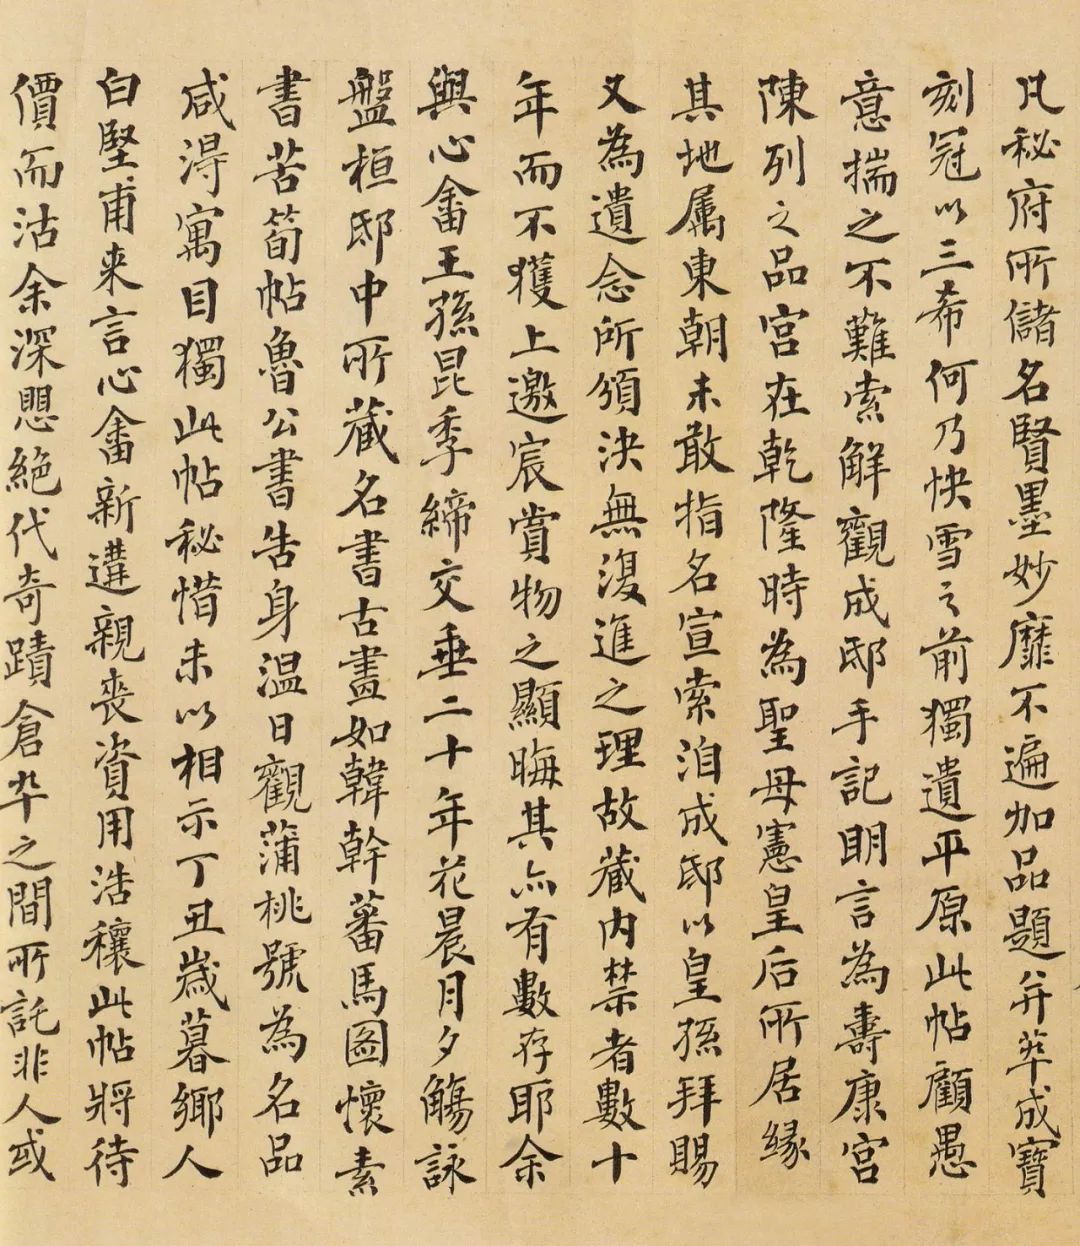 凡秘府所儲名賢墨妙靡不遍加品題并萃成寶
刻冠以三希何乃快雪之前獨遺平原此帖顧愚
意揣之不難索解觀成邸手記明言為壽康宮
陳列之品宮在乾隆時為聖母憲皇后所居緣
其地屬東朝未敢指名宣索洎成邸以皇孫拜賜
又為遺念所頒決無復進之理故藏內禁者數十
年而不獲上邀宸賞物之顯晦其亦有數存耶余
與心畬王孫昆季締交垂二十年花晨月夕觴詠
盤桓邸中所藏名書古畫如韓幹蕃馬圖懷素
書苦筍帖魯公書告身溫日觀蒲桃號為名品
咸得寓目獨此帖秘惜未以相示丁丑歲暮鄉人
白堅甫來言心畬新遘親喪資用浩穰此帖將待
價而沽余深愳絕代奇蹟倉卒之間所託非人或